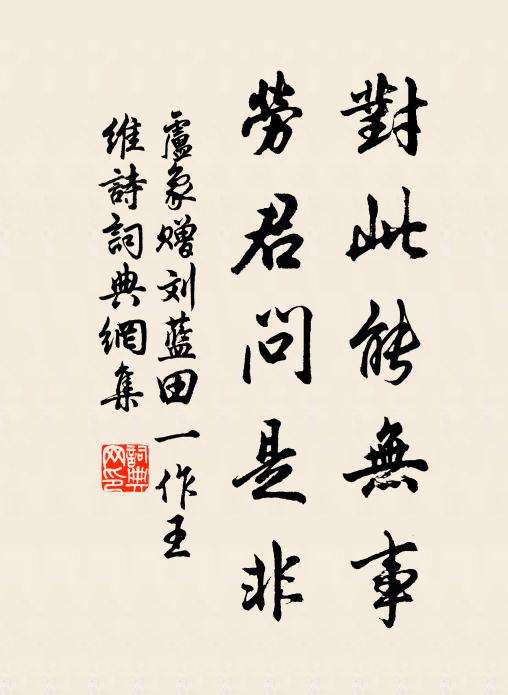 對此能無事
勞君問是非
盧象贈刘藍田一作王
維詩詞典網集
詞典
网印